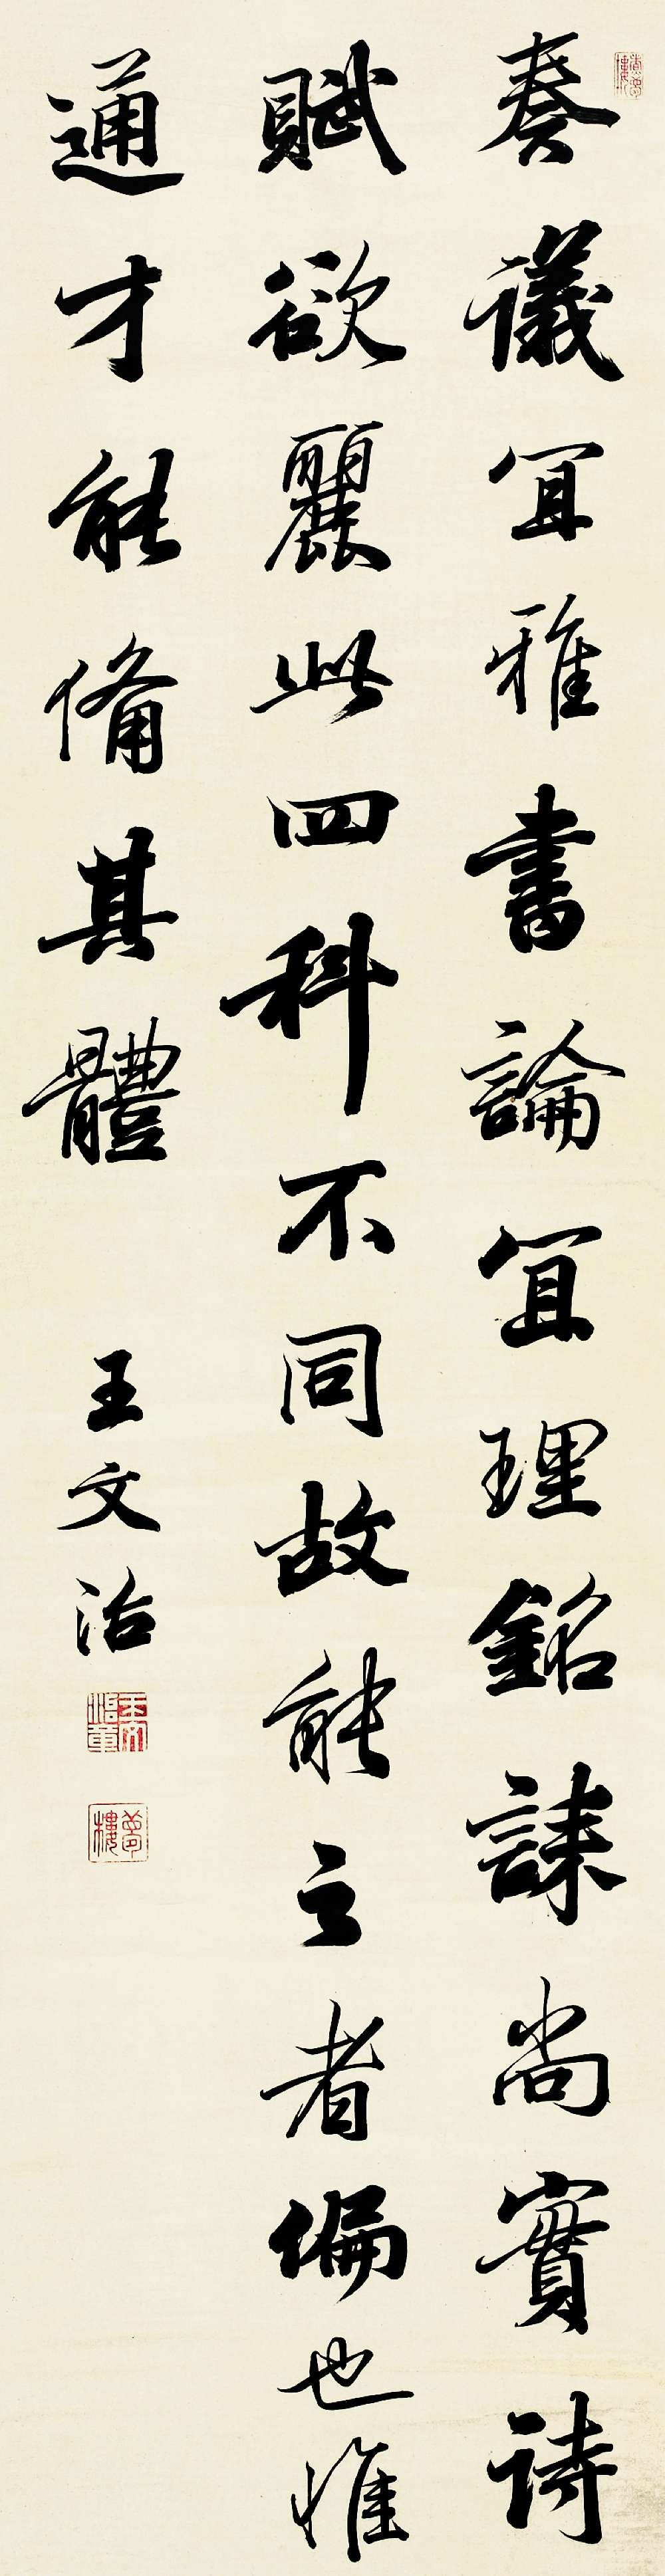 奏議宜雅書論宜理銘誄尚實詩
賦欲麗此四科不同故能之者偏也惟
通才能備其體
王文治
王文治印
夢樓